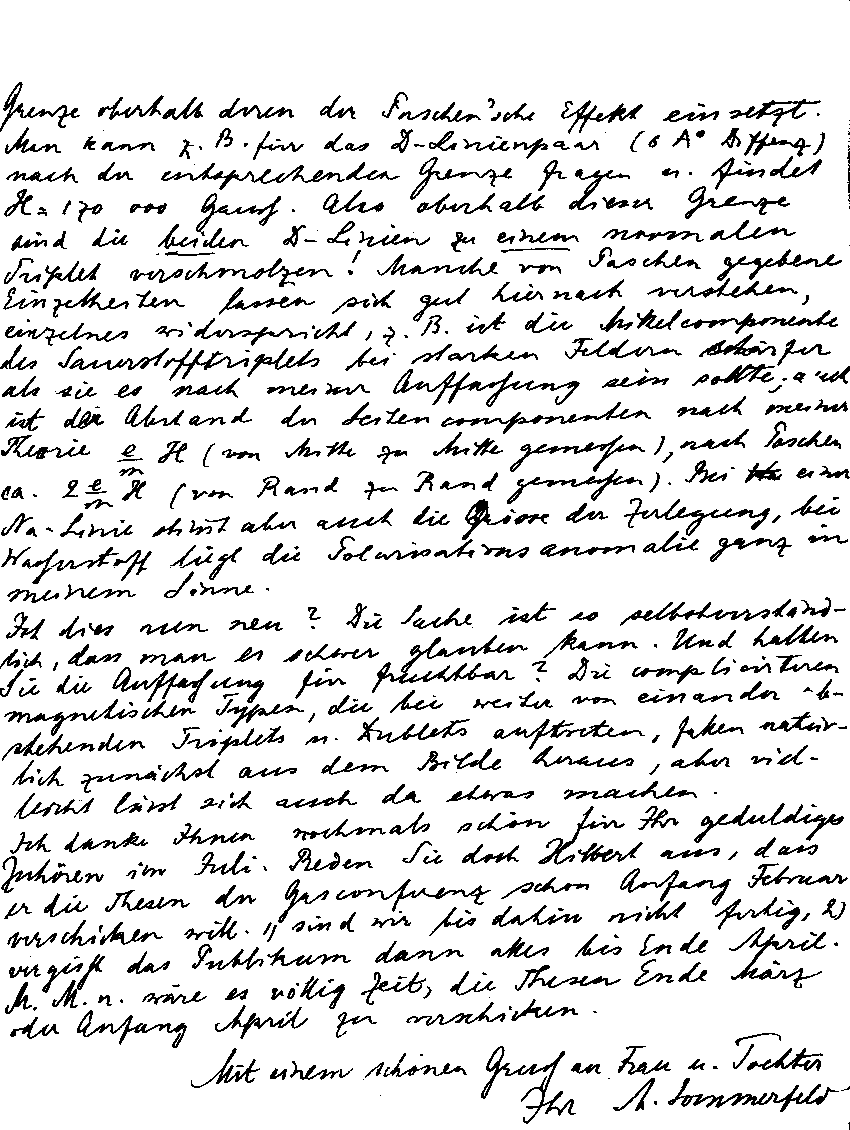 Grenze oberhalb deren der Paschen'sche Effekt einsetzt.
Man kann z. B. für das D-Linienpaar (6 A° Diffenz)
nach der entsprechenden Grenze fragen u. findet
H = 170 000 Gauss. Also oberhalb dieser Grenze
sind die beiden D-Linien zu einem normalen
Triplet verschmolzen! Manche von Paschen gegebene
Einzelheiten lassen sich gut hiernach verstehen,
einzelnes widerspricht, z. B. ist die Mittelcomponente
des Sauerstofftriplets bei starken Feldern schärfer
als sie es nach meiner Auffassung sein sollte; auch
ist der Abstand der Seitencomponenten nach meiner
Theorie e/m H (von Mitte zu Mitte gemessen), nach Paschen
ca. 2 e/m H (von Rand zu Rand gemessen). Bei einer
Na-Linie stimmt aber auch die Grösse der Zerlegung, bei
Wasserstoff liegt die Polarisationsanomalie ganz in
meinem Sinne.
Ist dies nun neu? Die Sache ist so selbstverständ-
lich, dass man es schwer glauben kann. Und halten
Sie die Auffassung für fruchtbar? Die complicirteren
magnetischen Typen, die bei weiter von einander ab-
stehenden Triplets u. Dublets auftreten, fallen natür-
lich zunächst aus dem Bilde heraus, aber viel-
leicht lässt sich auch da etwas machen.
Ich danke Ihnen nochmals schön für Ihr geduldiges
Zuhören im Juli. Reden Sie doch Hilbert aus, dass
er die Thesen der Gasconferenz schon Anfang Februar
verschicken will. 1) sind wir bis dahin nicht fertig, 2)
vergisst das Publikum dann alles bis Ende April.
M. M. n. wäre es völlig Zeit, die Thesen Ende März
oder Anfang April zu verschicken.
Mit einem schönen Gruss an Frau u. Tochter
Ihr A. Sommerfeld